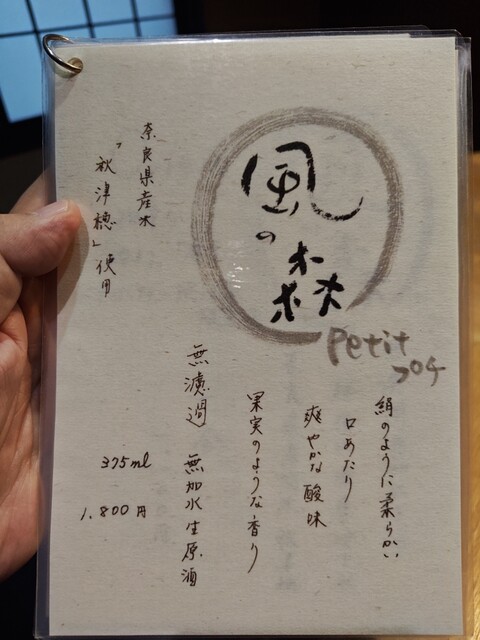 風の森
Petit
プチ
絹のように柔らかい
口あたり
爽やかな酸味
果実のような香り
無濾過 無加水生原酒
奈良県産米
「秋津穂」使用
375ml
1,800円